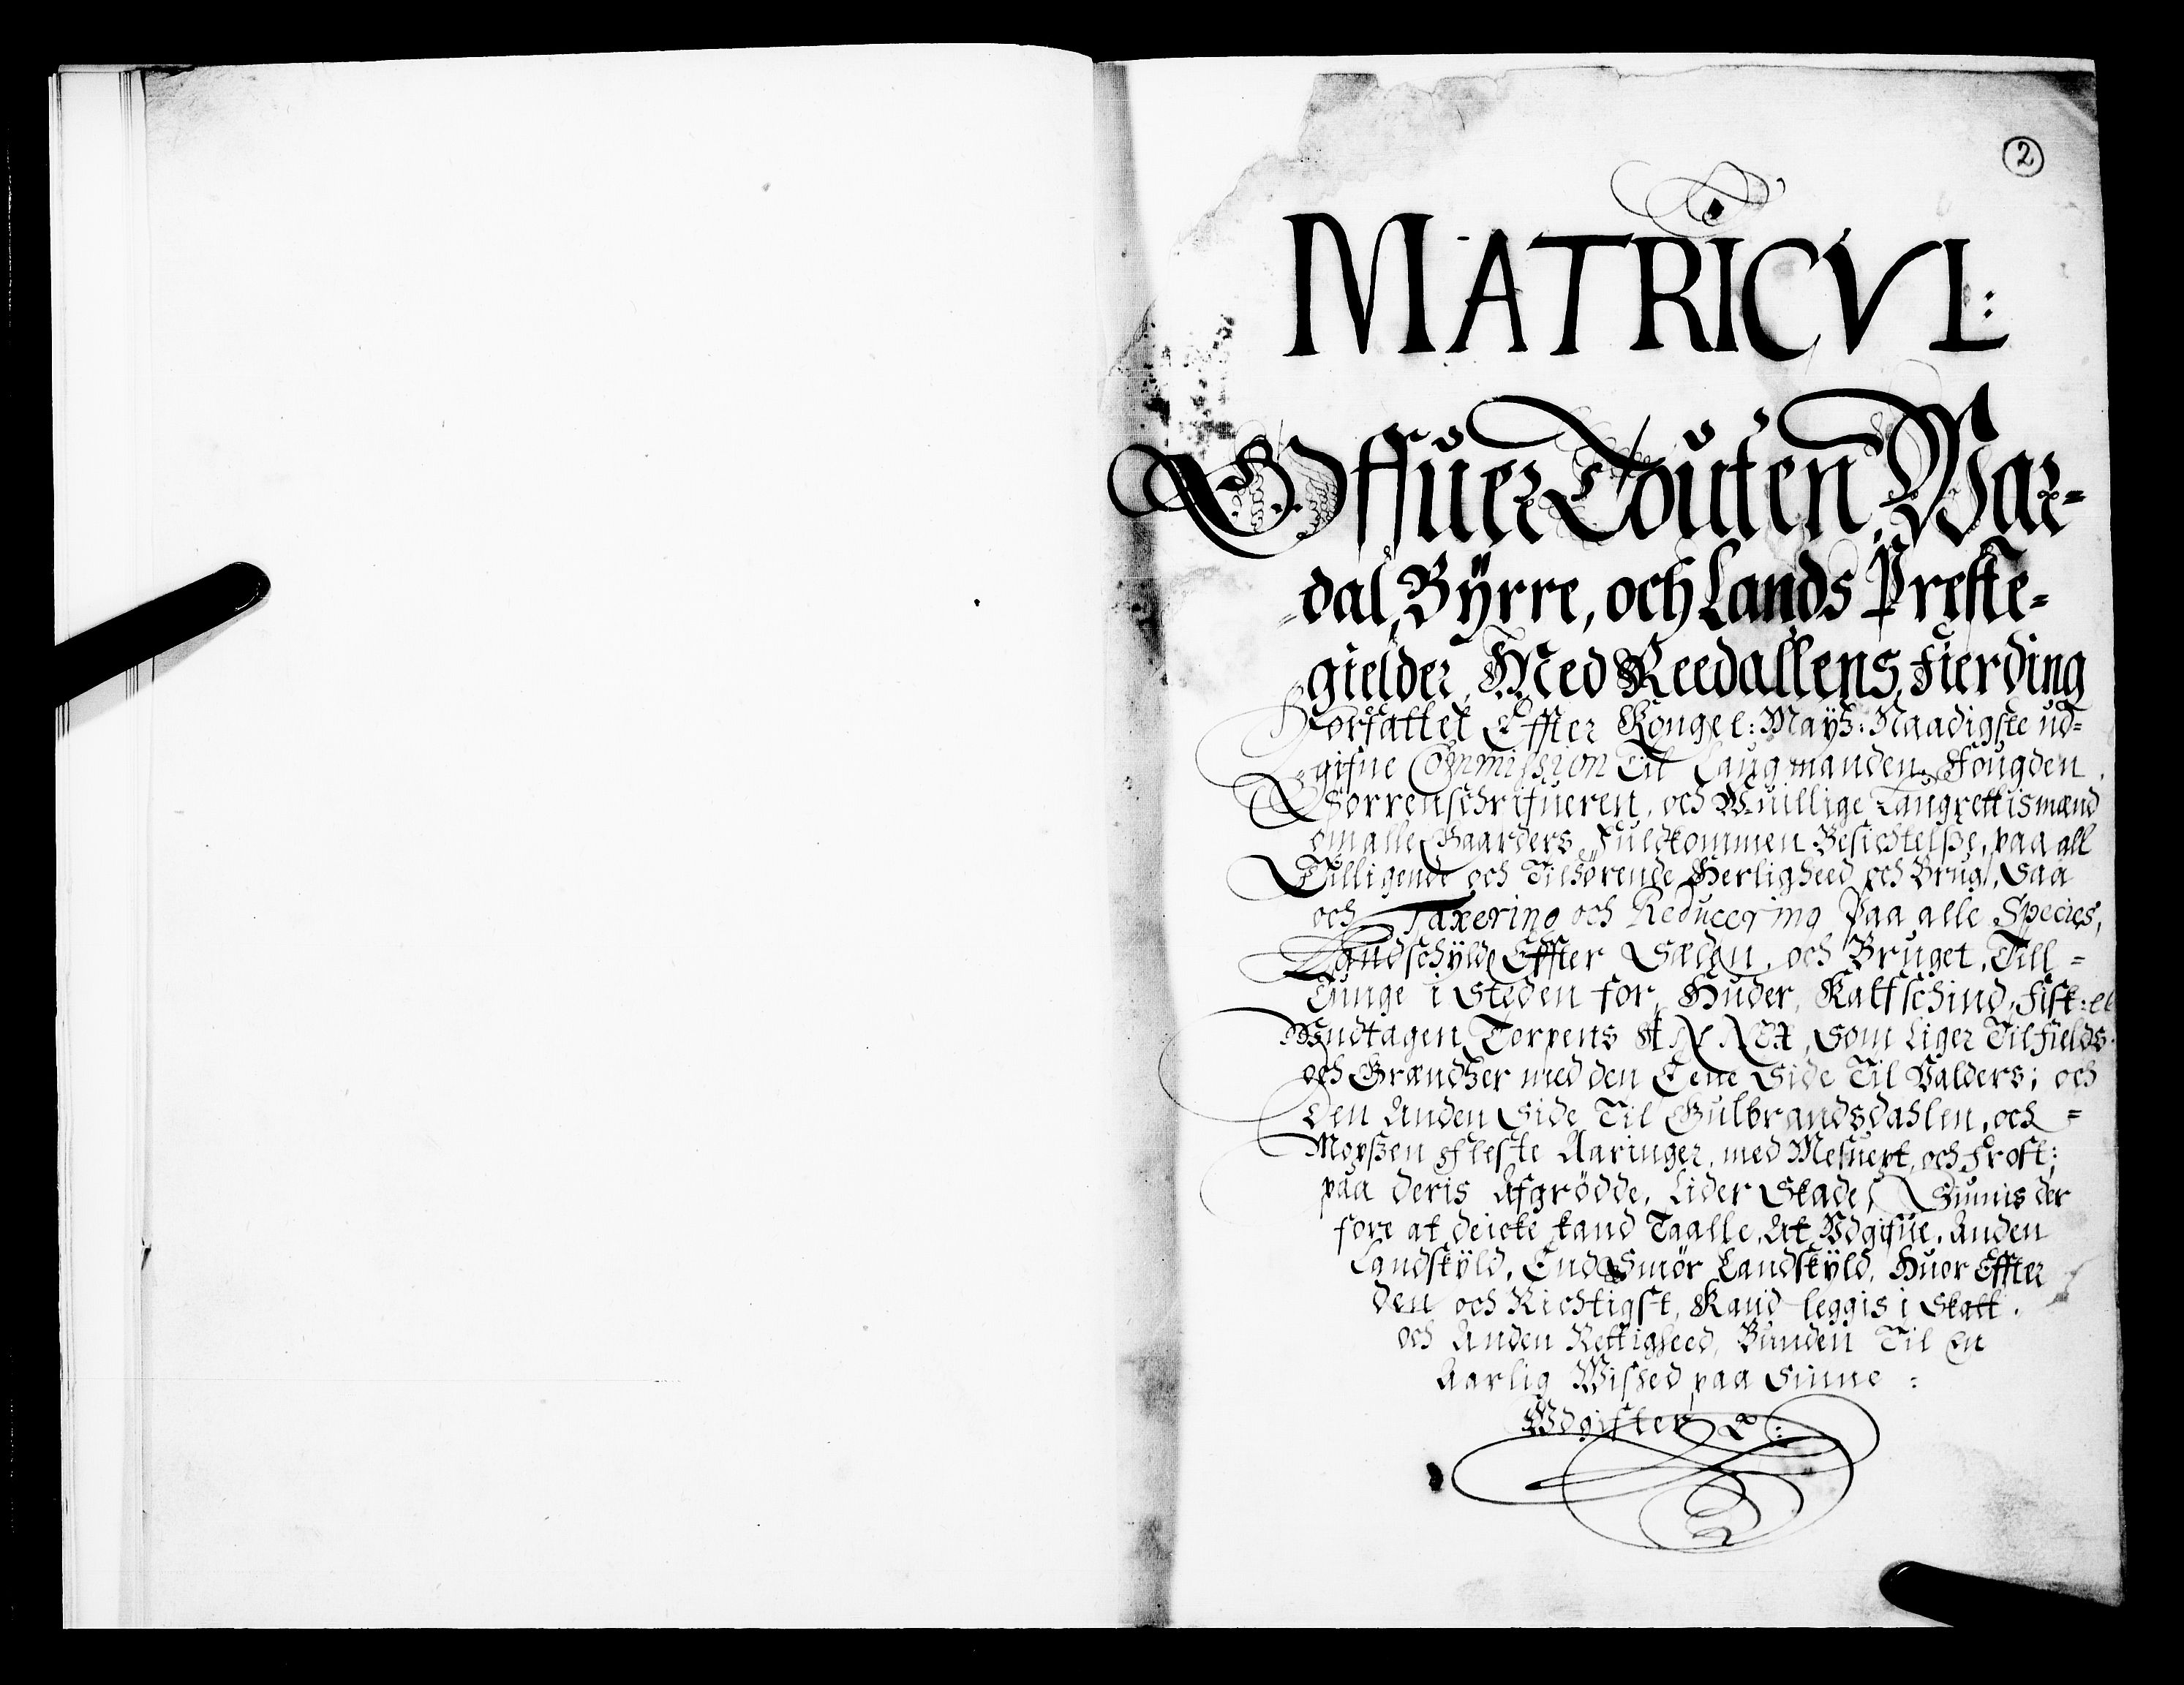 2
MATRICVL:
Offuer Touten, War=
dal, Byrre, och Lands Preste=
gielder, Med Reedallens Fierding
Forfattet Effter Kongel: Mayß: Naadigste ud=
gifne Commission Til Laugmanden, Fougden
Sorrenschrifueren, och W-uillige Laugrettismænd
om alle Gaarders Fuldkommen Besichtelße, paa all
Tilligende och Tilhörende Herligheed och Brug, Saa
och Taxering och Reducering Paa alle Species,
Landschyld Effter Sæden, och Bruget, Till=
Tunge i Steden for, Huder, Kalfschind, Fisk:
Vndtagen Torpens ANNEX, Som Liger Til Fields
och Grændtzer med den Eene Side Til Valders; och
Den Anden Side Til Gulbrandsdahlen, och=
Mopßen Fleste Aaringer, med Mesuext, och Frost;
paa deris Afgrödde, Lider Skade, Siunis der
fore at deicke kand Taalle, At Vdgifue, Anden
Landskyld, End Smör Landskyld, Huor Effter
den och Richtigst, Kand leggis i Skatt,
och Anden Rettigheed, Bunden Til En
Aarlig Wished paa Sinne:
Wdgifter